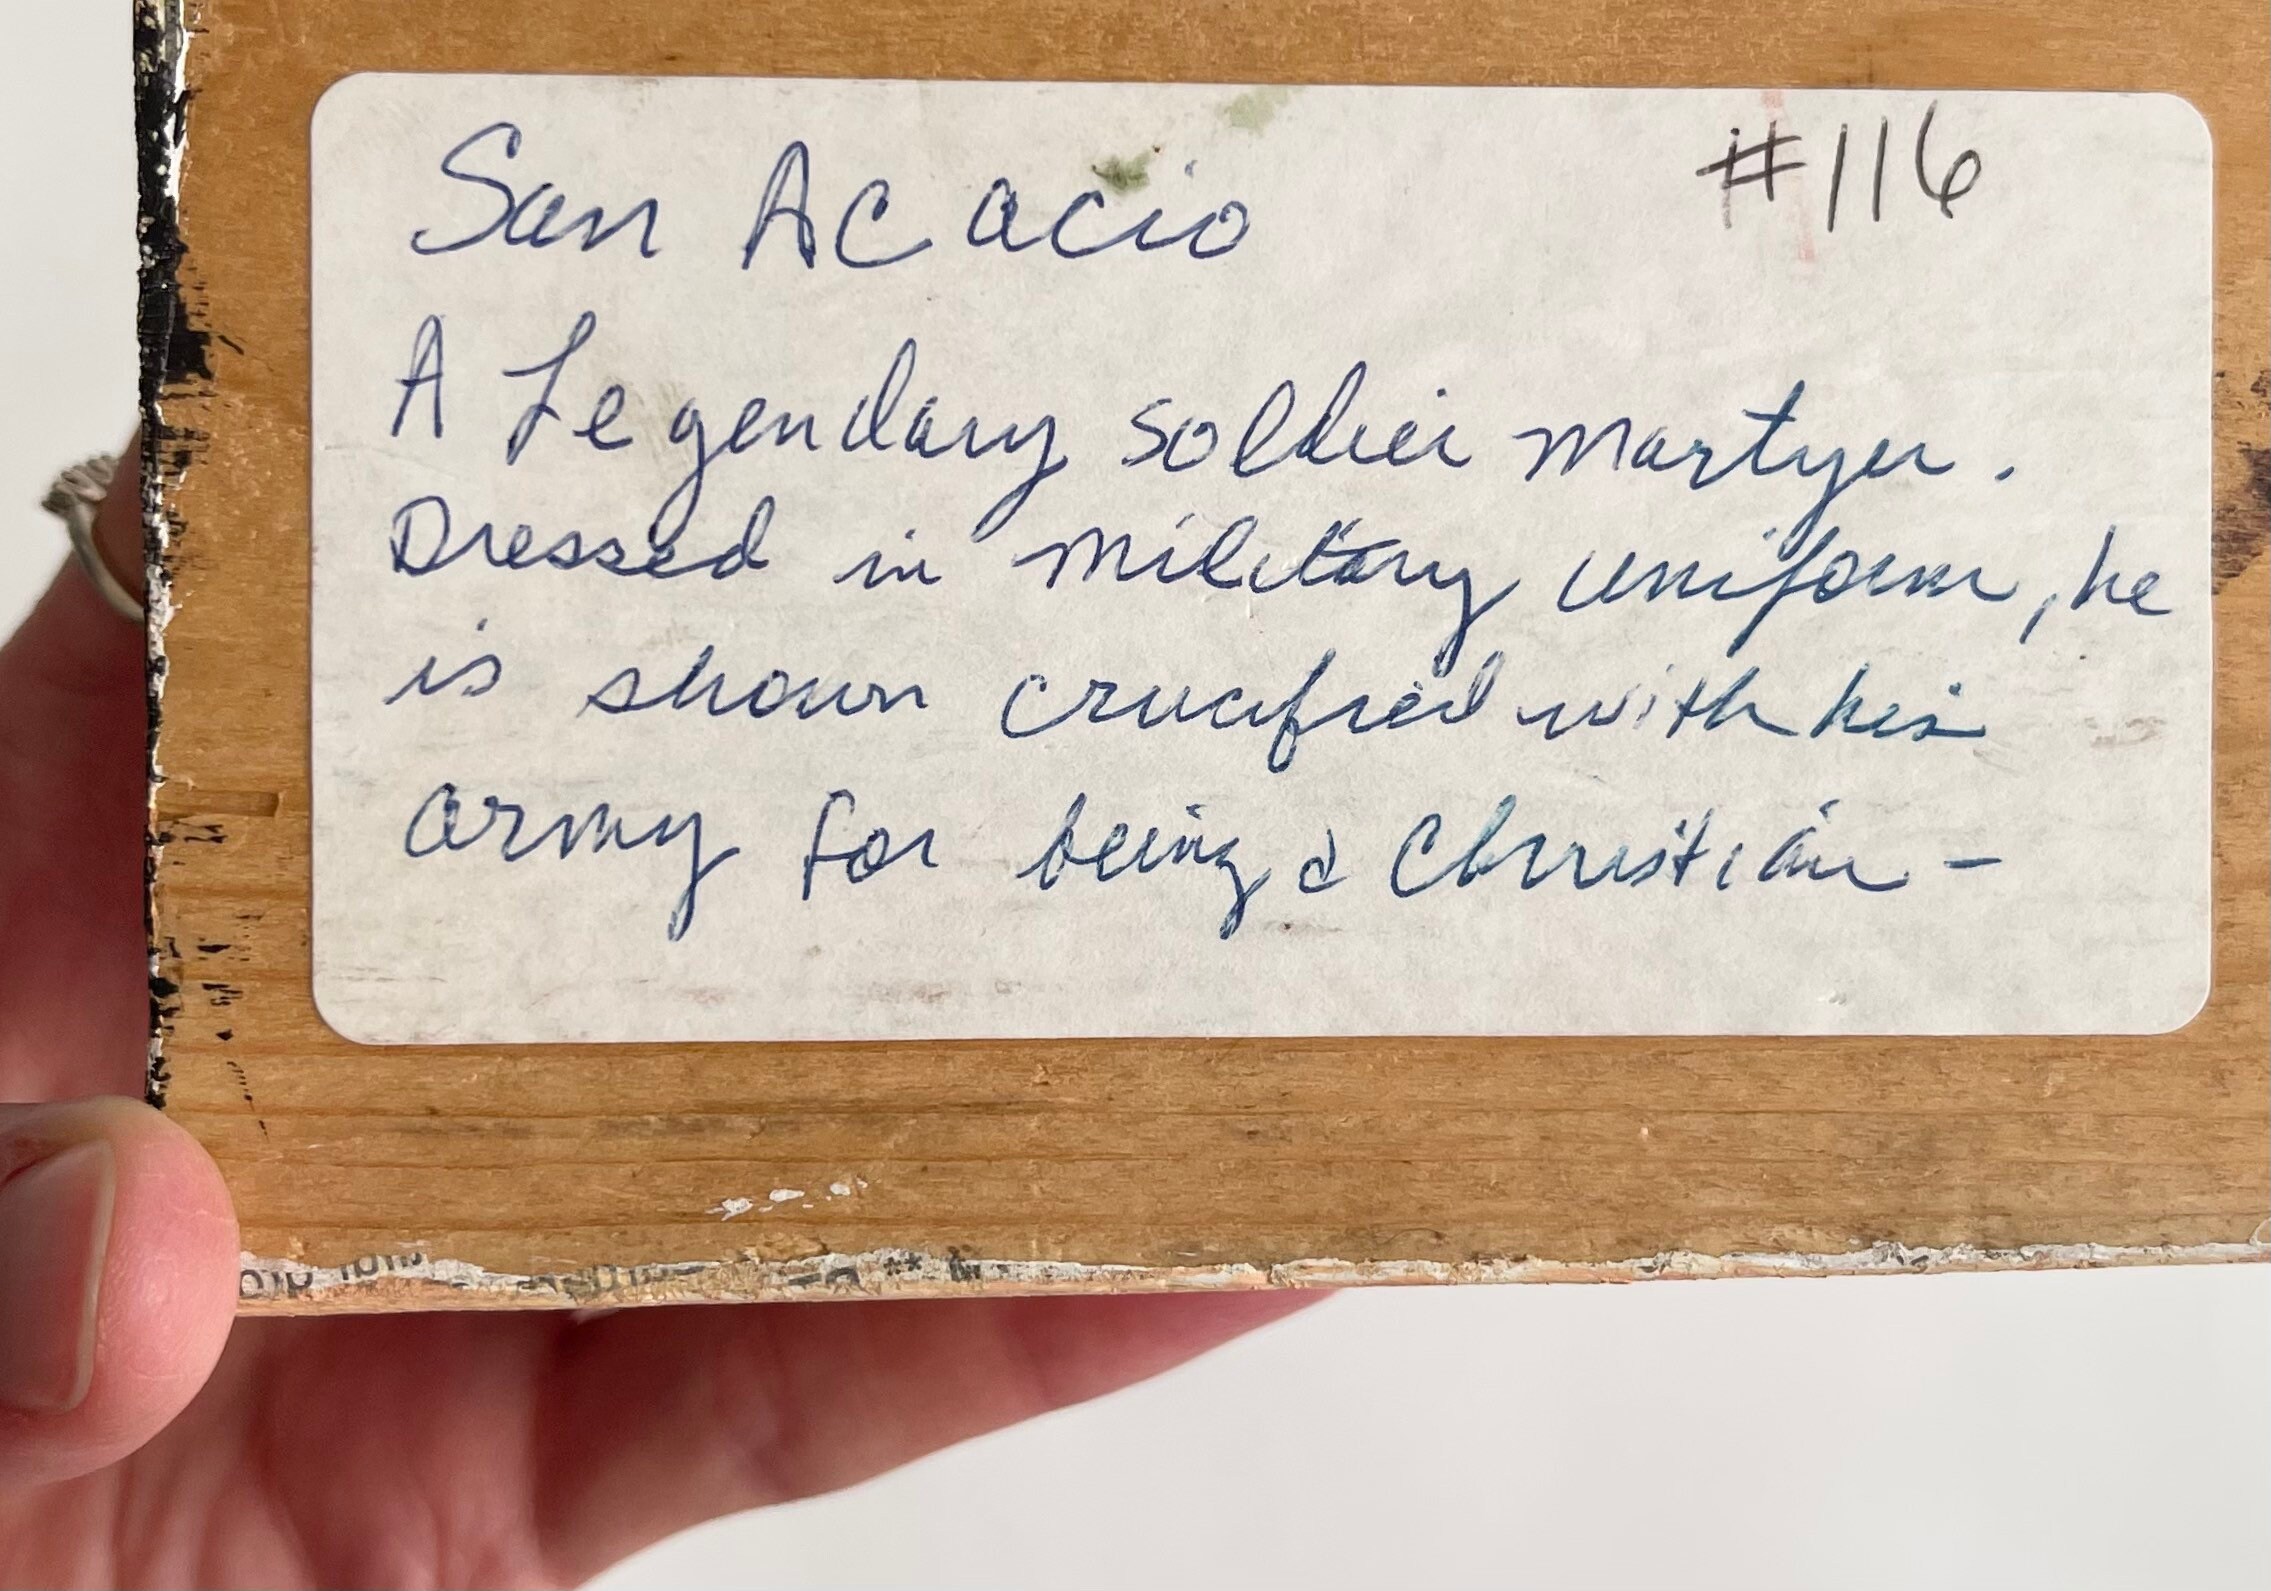 San Acacio #116
A Legendary soldier martyr.
Dressed in military uniform, he
is shown crucified with his
army for being a Christian -